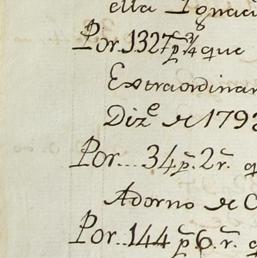 ella Ignaci
Por 1327 p.s 4 que
Extraordinar
Diz.e de 1793
Por... 34 p.s 2 r.s q
Adorno de C
Por... 144 p.s 6 r.s q